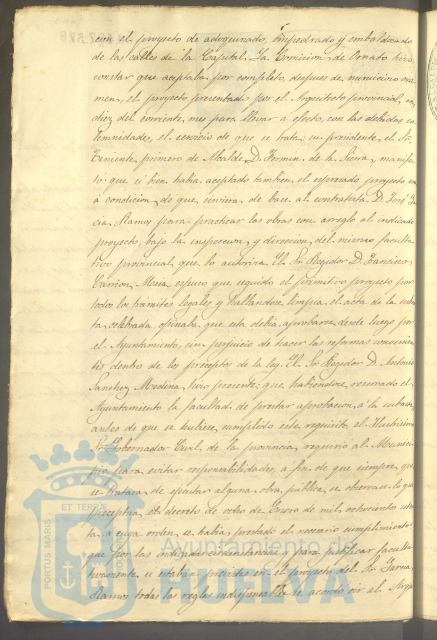 con el proyecto de adoquinado, empedrado y embaldosado
de las calles de la Capital. La Comision de Ornato hizo
constar que aceptaba por completo, despues de minucioso exa-
men, el proyecto presentado por el Arquitecto provincial, en
diez del corriente mes para llevar a efecto, con las debidas so-
lemnidades, el servicio de que se trata: su presidente, el Sr.
Teniente primero de Alcalde D. Fermin de la Sierra, manifes-
tó: que si bien habia aceptado tambien el espresado proyecto era
á condicion de que sirviera de base al contratista D. José Gar-
cia Ramos para practicar las obras con arreglo al indicado
proyecto, bajo la inspeccion y direccion del mismo faculta-
tivo provincial que lo autoriza. El Sr. Regidor D. Francisco
Carrion Mena, espuso que seguido el primitivo proyecto por
todos los tramites legales y hallandose limpia el acta de la subas-
ta celebrada, opinaba que esta debia aprobarse desde luego por
el Ayuntamiento, sin perjuicio de hacer las reformas convenien-
tes dentro de los preceptos de la ley. El Sr. Regidor D. Antonio
Sanchez Medina, hizo presente: que habiendose reservado el
Ayuntamiento la facultad de prestar aprobacion á la subasta,
antes de que se hubiese cumplido este requisito, el Ilustrisimo
Sr. Gobernador Civil de la provincia, requirió al Munici-
pio para evitar responsabilidades, a fin de que siempre que
se tratara de ejecutar alguna obra pública, se observase lo que
preceptua el decreto de ocho de Enero de mil ochocientos
a cuya orden, se habia prestado el necesario cumplimiento:
que por las indicadas circunstancias y para justificar faculta-
tivamente, si estaban previstas en el proyecto del Sr. Garcia
Ramos todas las reglas indispensables se acordó oir al Arqui-
Ayuntamiento de
HUELVA
ET TERRA
PORTUS MARIS
CUSTODIA